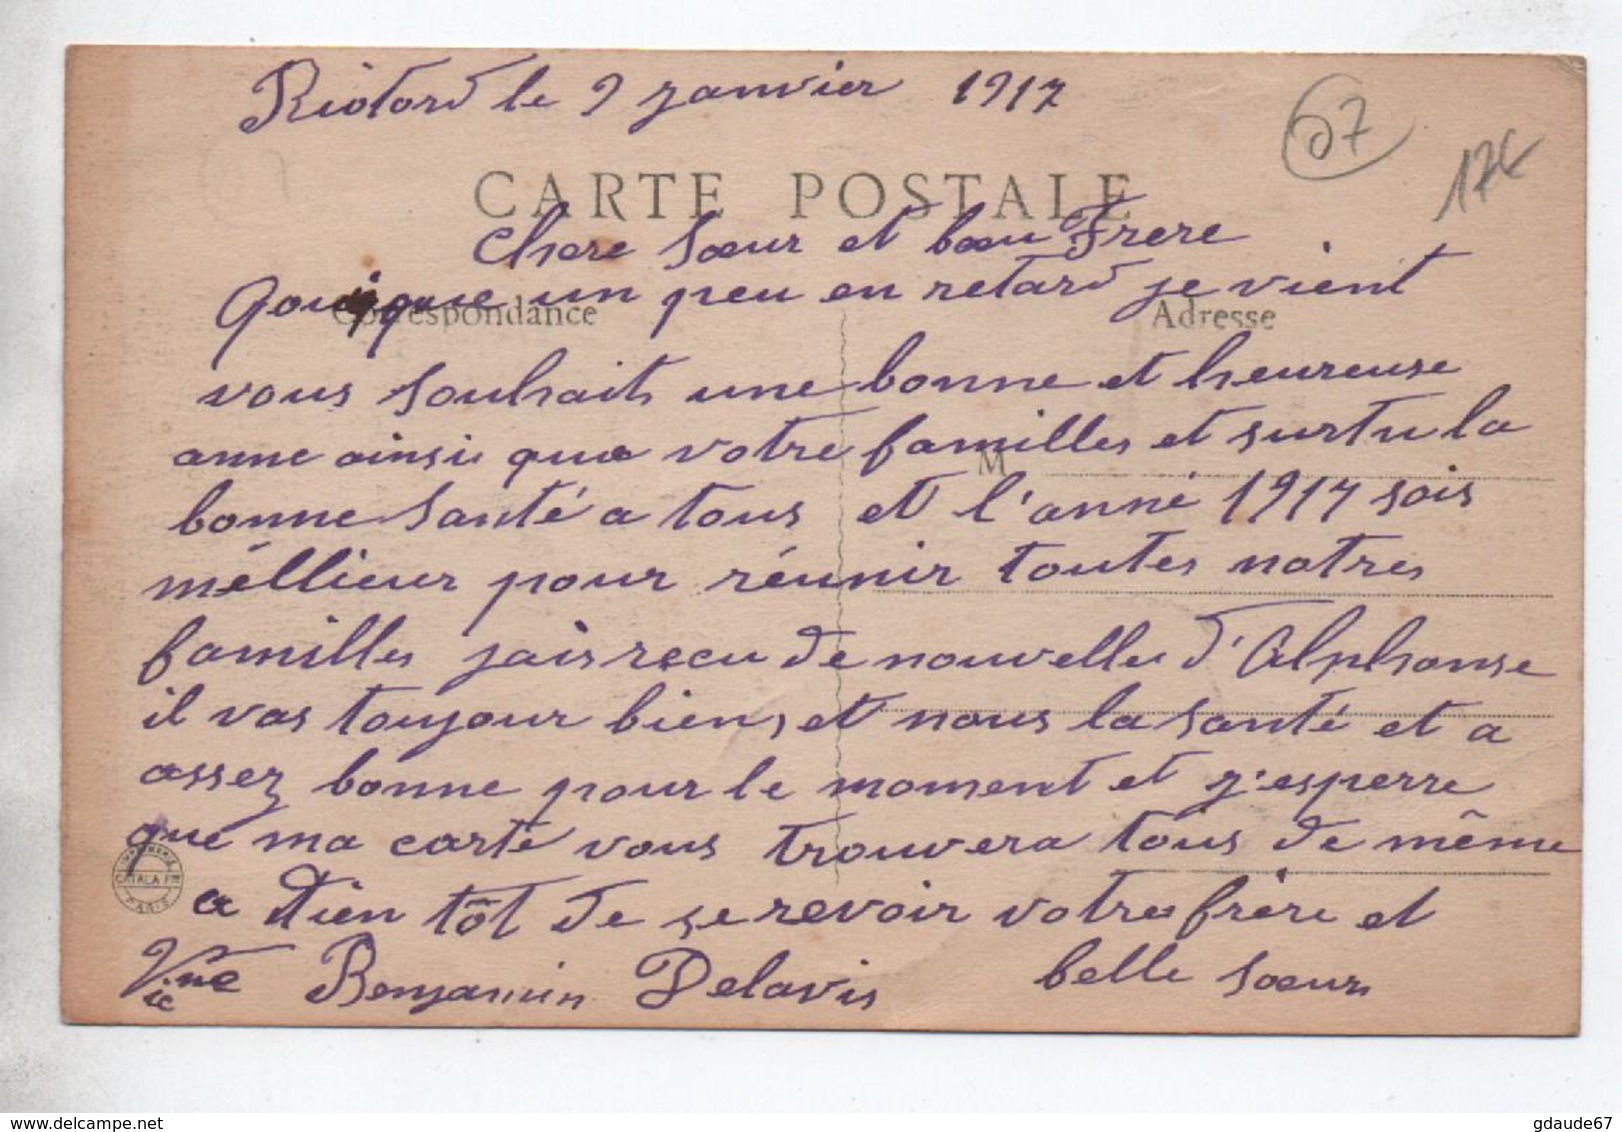 Riotord le 9 janvier 1917
07
17€
CARTE POSTALE
Chere Sœur et beau Frere
Correspondance
Adresse
qouique un peu en retard je vient
vous souhait une bonne et heureuse
anne ainsi que votre familles et surtu la
M
bonne santé a tous et l'anné 1917 sois
méllieur pour réunir toutes notres
familles jais recu de nouvelles d'Alphonse
il vas toujour bien, et nous la santé et a
assez bonne pour le moment et j'esperre
que ma carte vous trouvera tous de même
IMPRIMERIE CATALA Fres PARIS
a Bien tôt de se revoir votres frère et
belle sœur
Benjamin Delavis
gdaude67